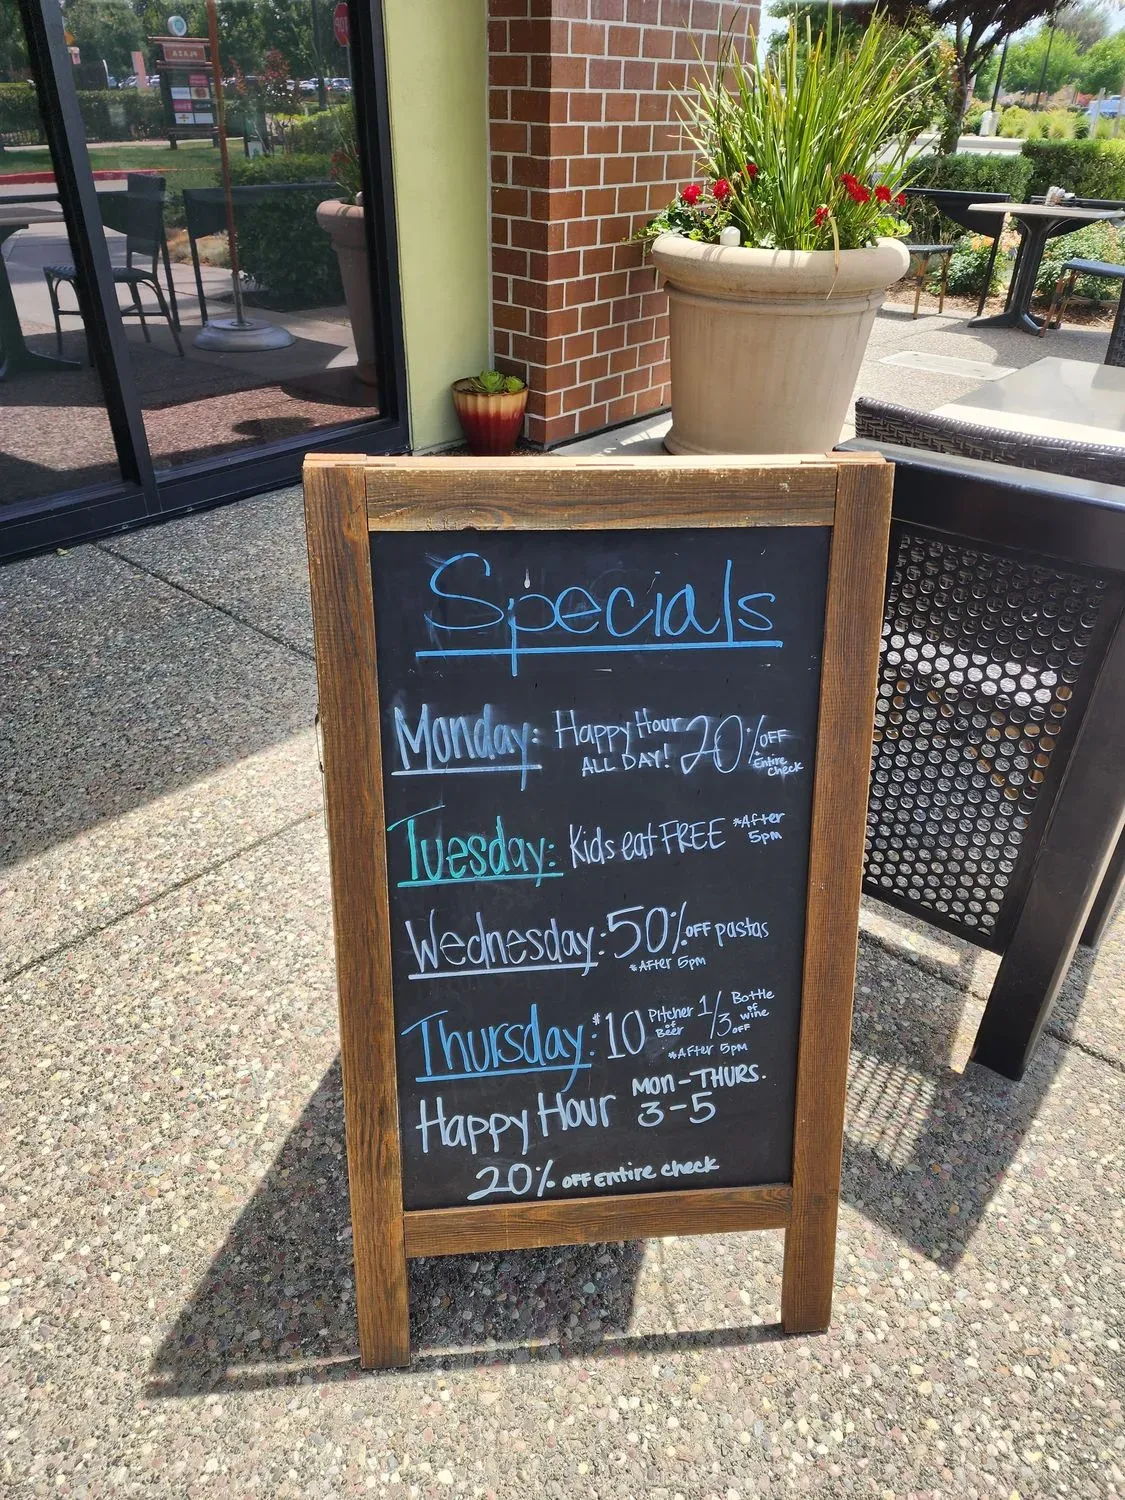 PLAZA
Specials
Monday: Happy Hour ALL DAY! 20% OFF Entire Check
Tuesday: Kids eat FREE *After 5pm
Wednesday: 50% OFF pastas
*After 5pm
Thursday: $10 Pitcher of Beer 1/3 OFF Bottle of wine
*After 5pm
Happy Hour MON-THURS. 3-5
20% OFF Entire check